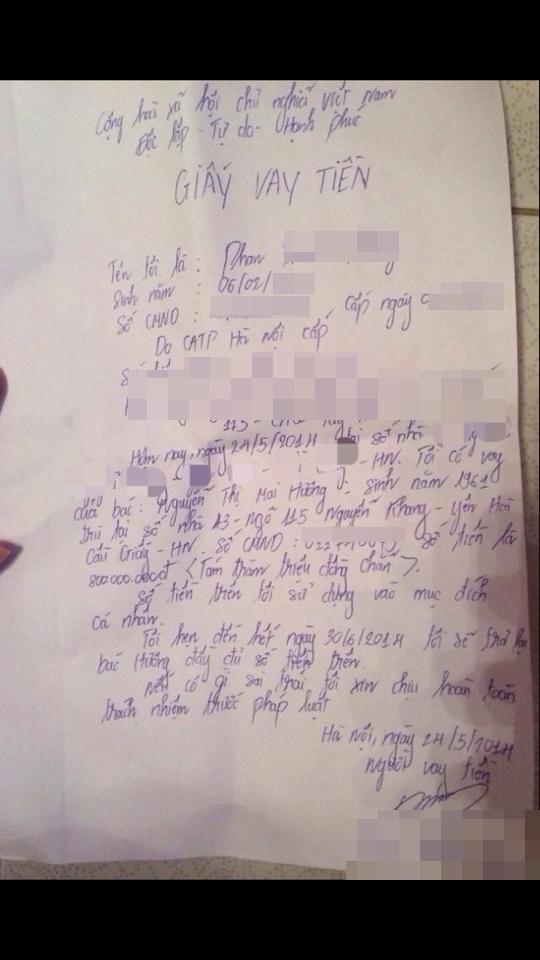 Cộng hoà xã hội chủ nghĩa Việt Nam
Độc lập - Tự do - Hạnh phúc
GIẤY VAY TIỀN
Tên tôi là : Phan
Sinh năm : 06/02/
Số CMND : Cấp ngày
Do CATP Hà Nội cấp
Hôm nay, ngày 24/5/2014 tại số nhà
- HN. Tôi có vay
của bác : Nguyễn Thị Mai Hương - Sinh năm 1961
trú tại số nhà 13 - ngõ 115 Nguyễn Khang - Yên Hoà
Cầu Giấy - HN. Số CMND : số tiền là
800.000.000đ <Tám trăm triệu đồng chẵn>.
Số tiền trên tôi sử dụng vào mục đích
cá nhân.
Tôi hẹn đến hết ngày 30/6/2014 tôi sẽ trả lại
bác Hương đầy đủ số tiền trên.
nếu có gì sai trái tôi xin chịu hoàn toàn
trách nhiệm trước pháp luật
Hà Nội, ngày 24/5/2014
Người vay tiền